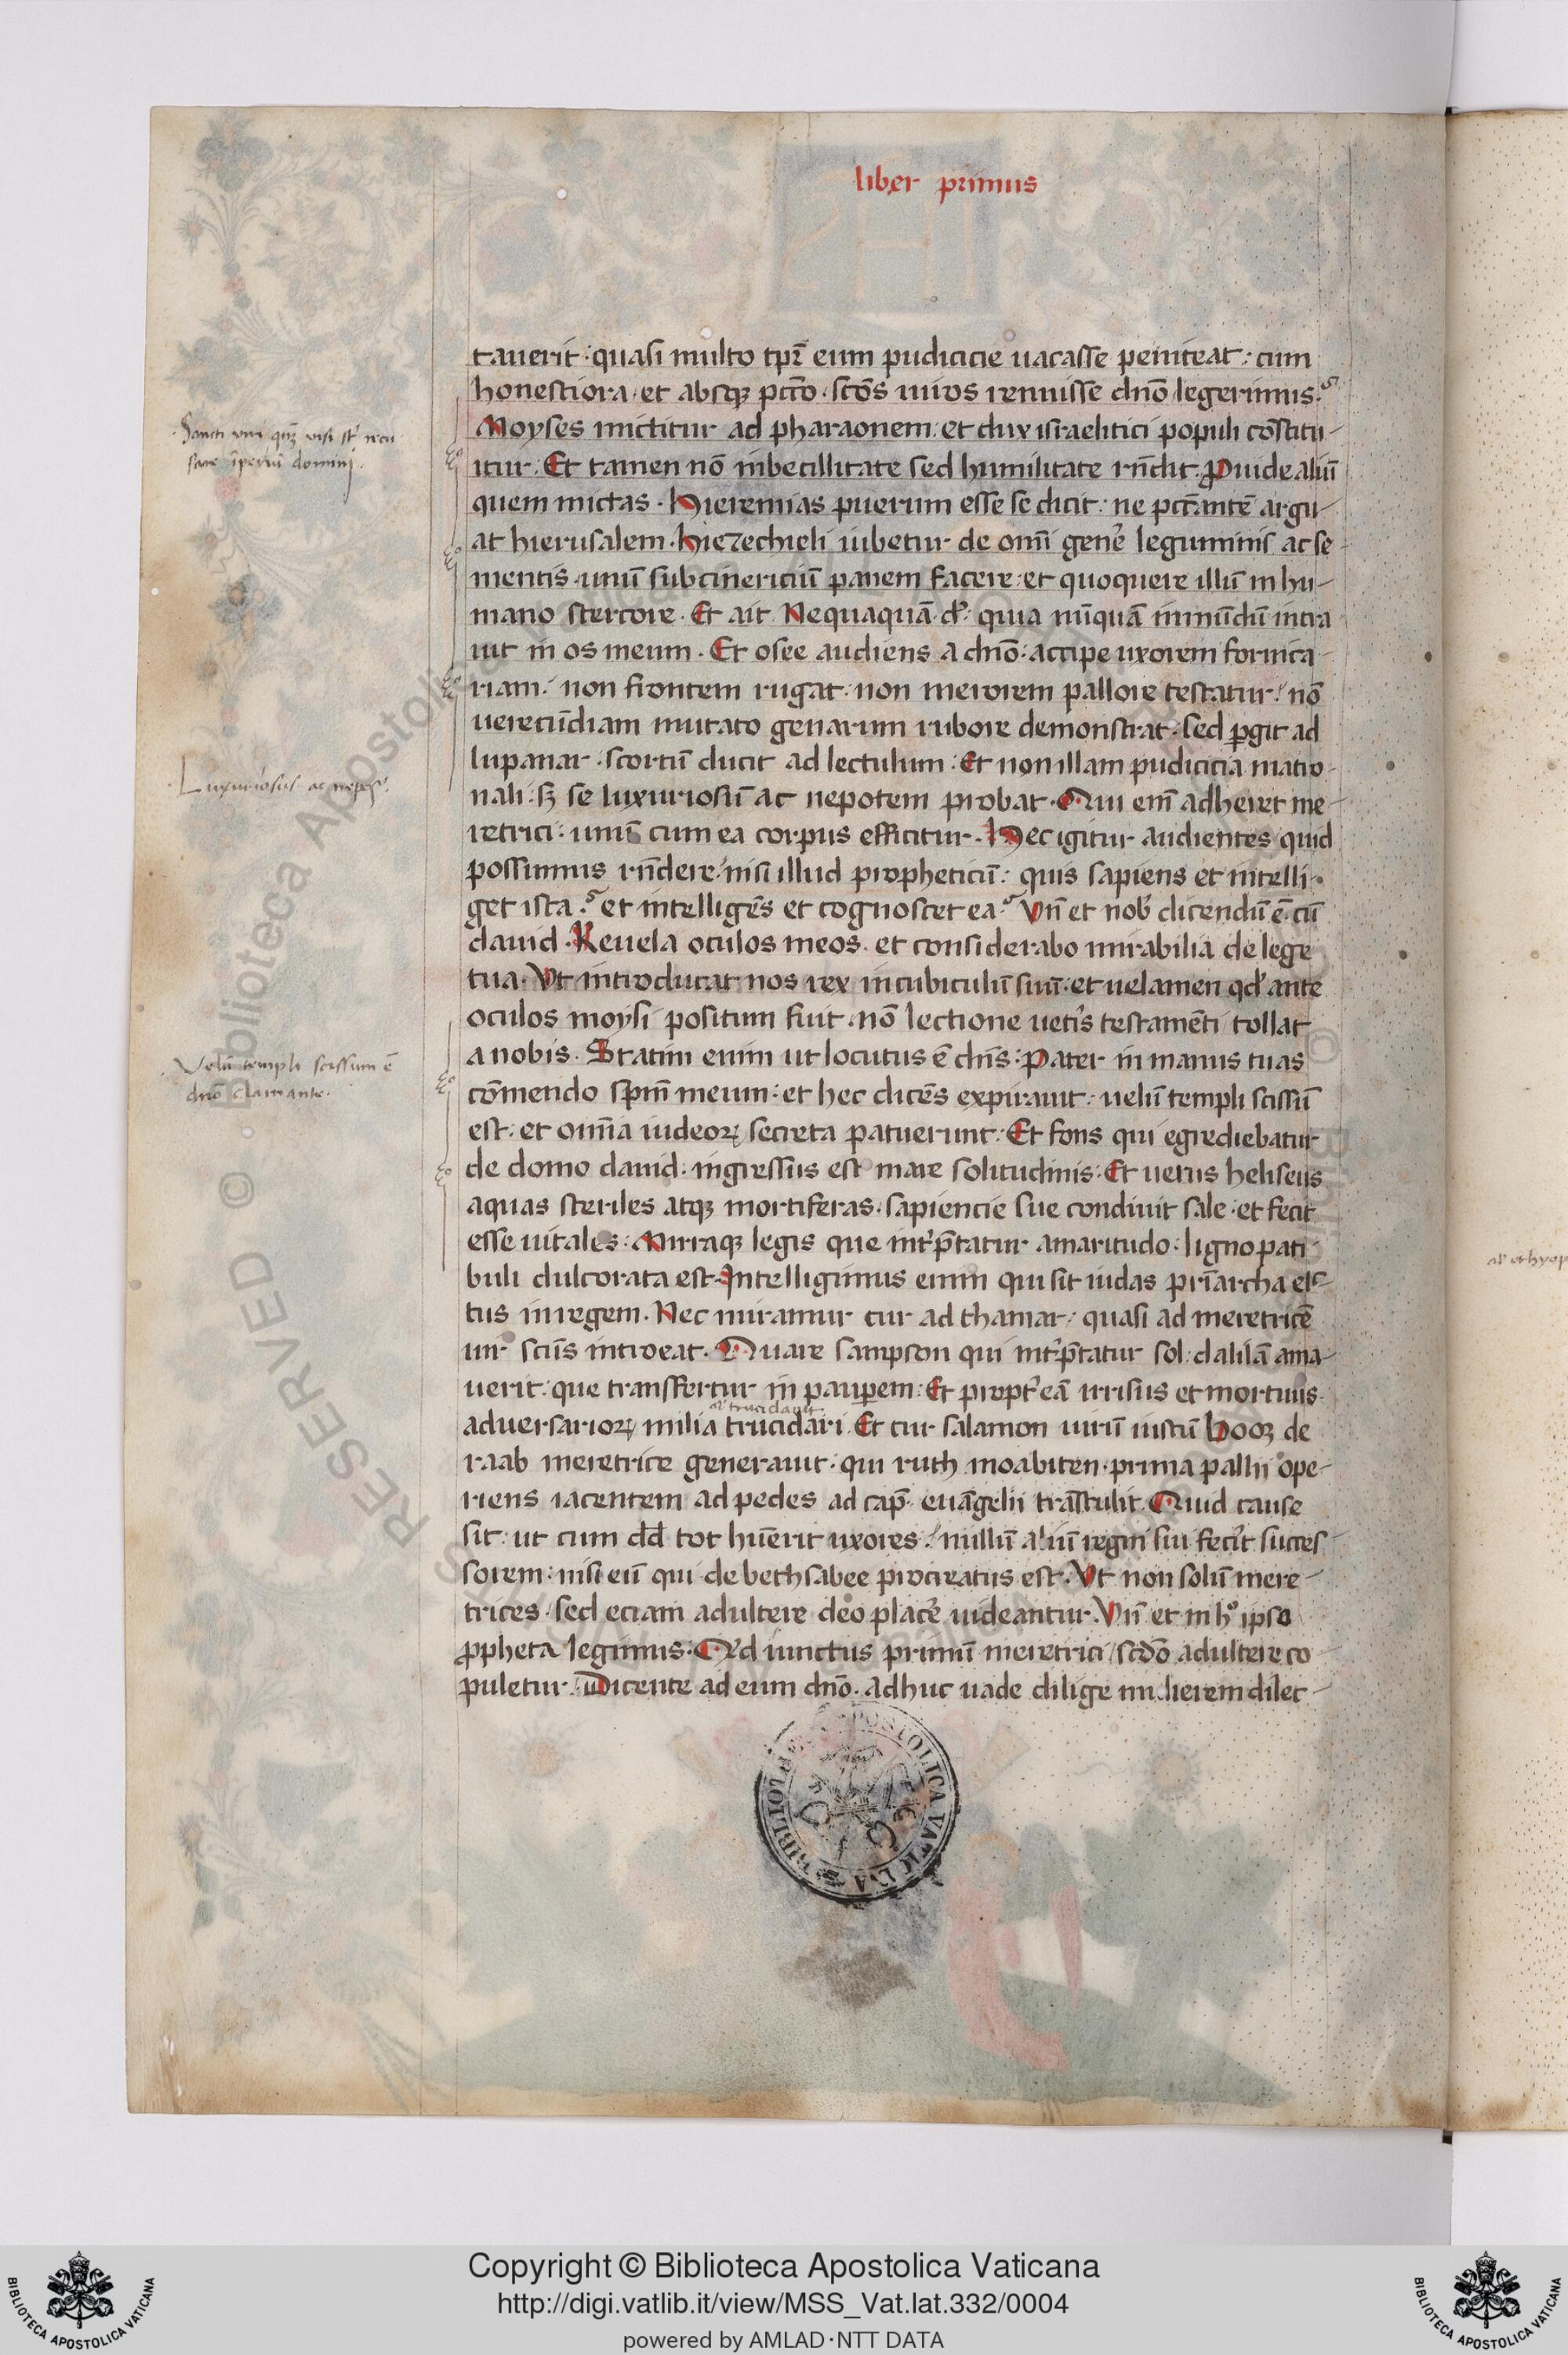 liber primus
tauerit: quasi multo tpr̄ eum pudicicie uacasse peniteat: cum
honestiora et absqꝫ pctō. scōs uiros renuisse dnō legerimus.
Moyses mictitur ad pharaonem. et dux israelitici populi cōstitu-
itur. Et tamen nō inbecillitate sed humilitate rn̄dit. ꝓuide aliū
quem mictas. Hieremias puerum esse se dicit: ne pctāntē argu-
at hierusalem. hiezechieli iubetur de omī gene᷒ leguminis ac se-
mentis unū subcinericiū panem facere: et quoquere illū in hu-
mano stercore. Et ait Nequaquā. quia nūquā inmūdū intra
uit in os meum. Et osee audiens a dnō: accipe uxorem fornica-
riam: non frontem rugat. non merorem pallore testatur: nō
uerecūdiam mutato genarum rubore demonstrat. sed ꝑgit ad
lupanar. scortū ducit ad lectulum. Et non illam pudicicia matro-
nali. sꝫ se luxuriosū ac nepotem probat. Qui em̄ adheret me-
retrici: unū cum ea corpus efficitur. Hec igitur audientes quid
possumus rn̄dere: nisi illud propheticū: quis sapiens et intelli-
get ista. et intelligēs et cognoscet ea. Vn̄ et nob᷒ dicendū ē. cū
dauid. Reuela oculos meos. et considerabo mirabilia de lege
tua. Vt introducat nos rex in cubiculū suū. et uelamen qd᷒ ante
oculos moysi positum fuit. nō lectione uetis testamēti tollat
a nobis. Statim enim ut locutus ē dns̄: Pater in manus tuas
cōmendo spm̄ meum: et hec dicēs expirauit: uelū templi scissū
est: et omīa iudeoꝝ secreta patuerunt. Et fons qui egrediebatur
de domo dauid: ingressus est mare solitudinis. Et uerus heliseus
aquas steriles atqꝫ mortiferas. sapiencie sue condiuit sale. et fecit
esse uitales. Mirraqꝫ legis que int᷒p̄tatur amaritudo: ligno pati-
buli dulcorata est. Intelligimus enim qui sit iudas pr̄iarcha elec-
tus in regem. Nec miramur cur ad thamar: quasi ad meretricē
uir scūs introeat. Quare sampson qui int᷒p̄tatur sol: dalilā ama-
uerit: que transfertur in pauꝑem. Et propt᷒ eā irrisus et mortuus
al᷒ trucidauit
aduersarioꝝ milia trucidari. Et cur salamon uirū iustū booꝫ de
raab meretrice generauit: qui ruth moabiten. prima pallii ope-
riens iacentem ad pedes ad cap᷒ euāgelii trāstulit. Quid cause
sit: ut cum dd̄ tot hūerit uxores: nullū aliū regni sui fecit succes-
sorem: nisi eū qui de bethsabee procreatus est. Vt non solū mere-
trices. sed eciam adultere deo place᷒ uideantur. Vn̄ et in hͦ ipso
ꝓpheta legimus. Qd iunctus primū meretrici. scdō adultere co-
puletur. Dicente ad eum dnō. adhuc uade dilige mulierem dilec-
Sancti viri qn̄qꝫ visi st᷒ recu
sare īperiū dominj.
Luxuriosus ac nepos.
Velū templi scissum ē
dnō clamante.
RESERVED © Biblioteca Apostolica
BIBLIOTECA APOSTOLICA VATICANA
Copyright © Biblioteca Apostolica Vaticana
http://digi.vatlib.it/view/MSS_Vat.lat.332/0004
powered by AMLAD·NTT DATA
BIBLIOTECA APOSTOLICA VATICANA
BIBLIOTECA APOSTOLICA VATICANA